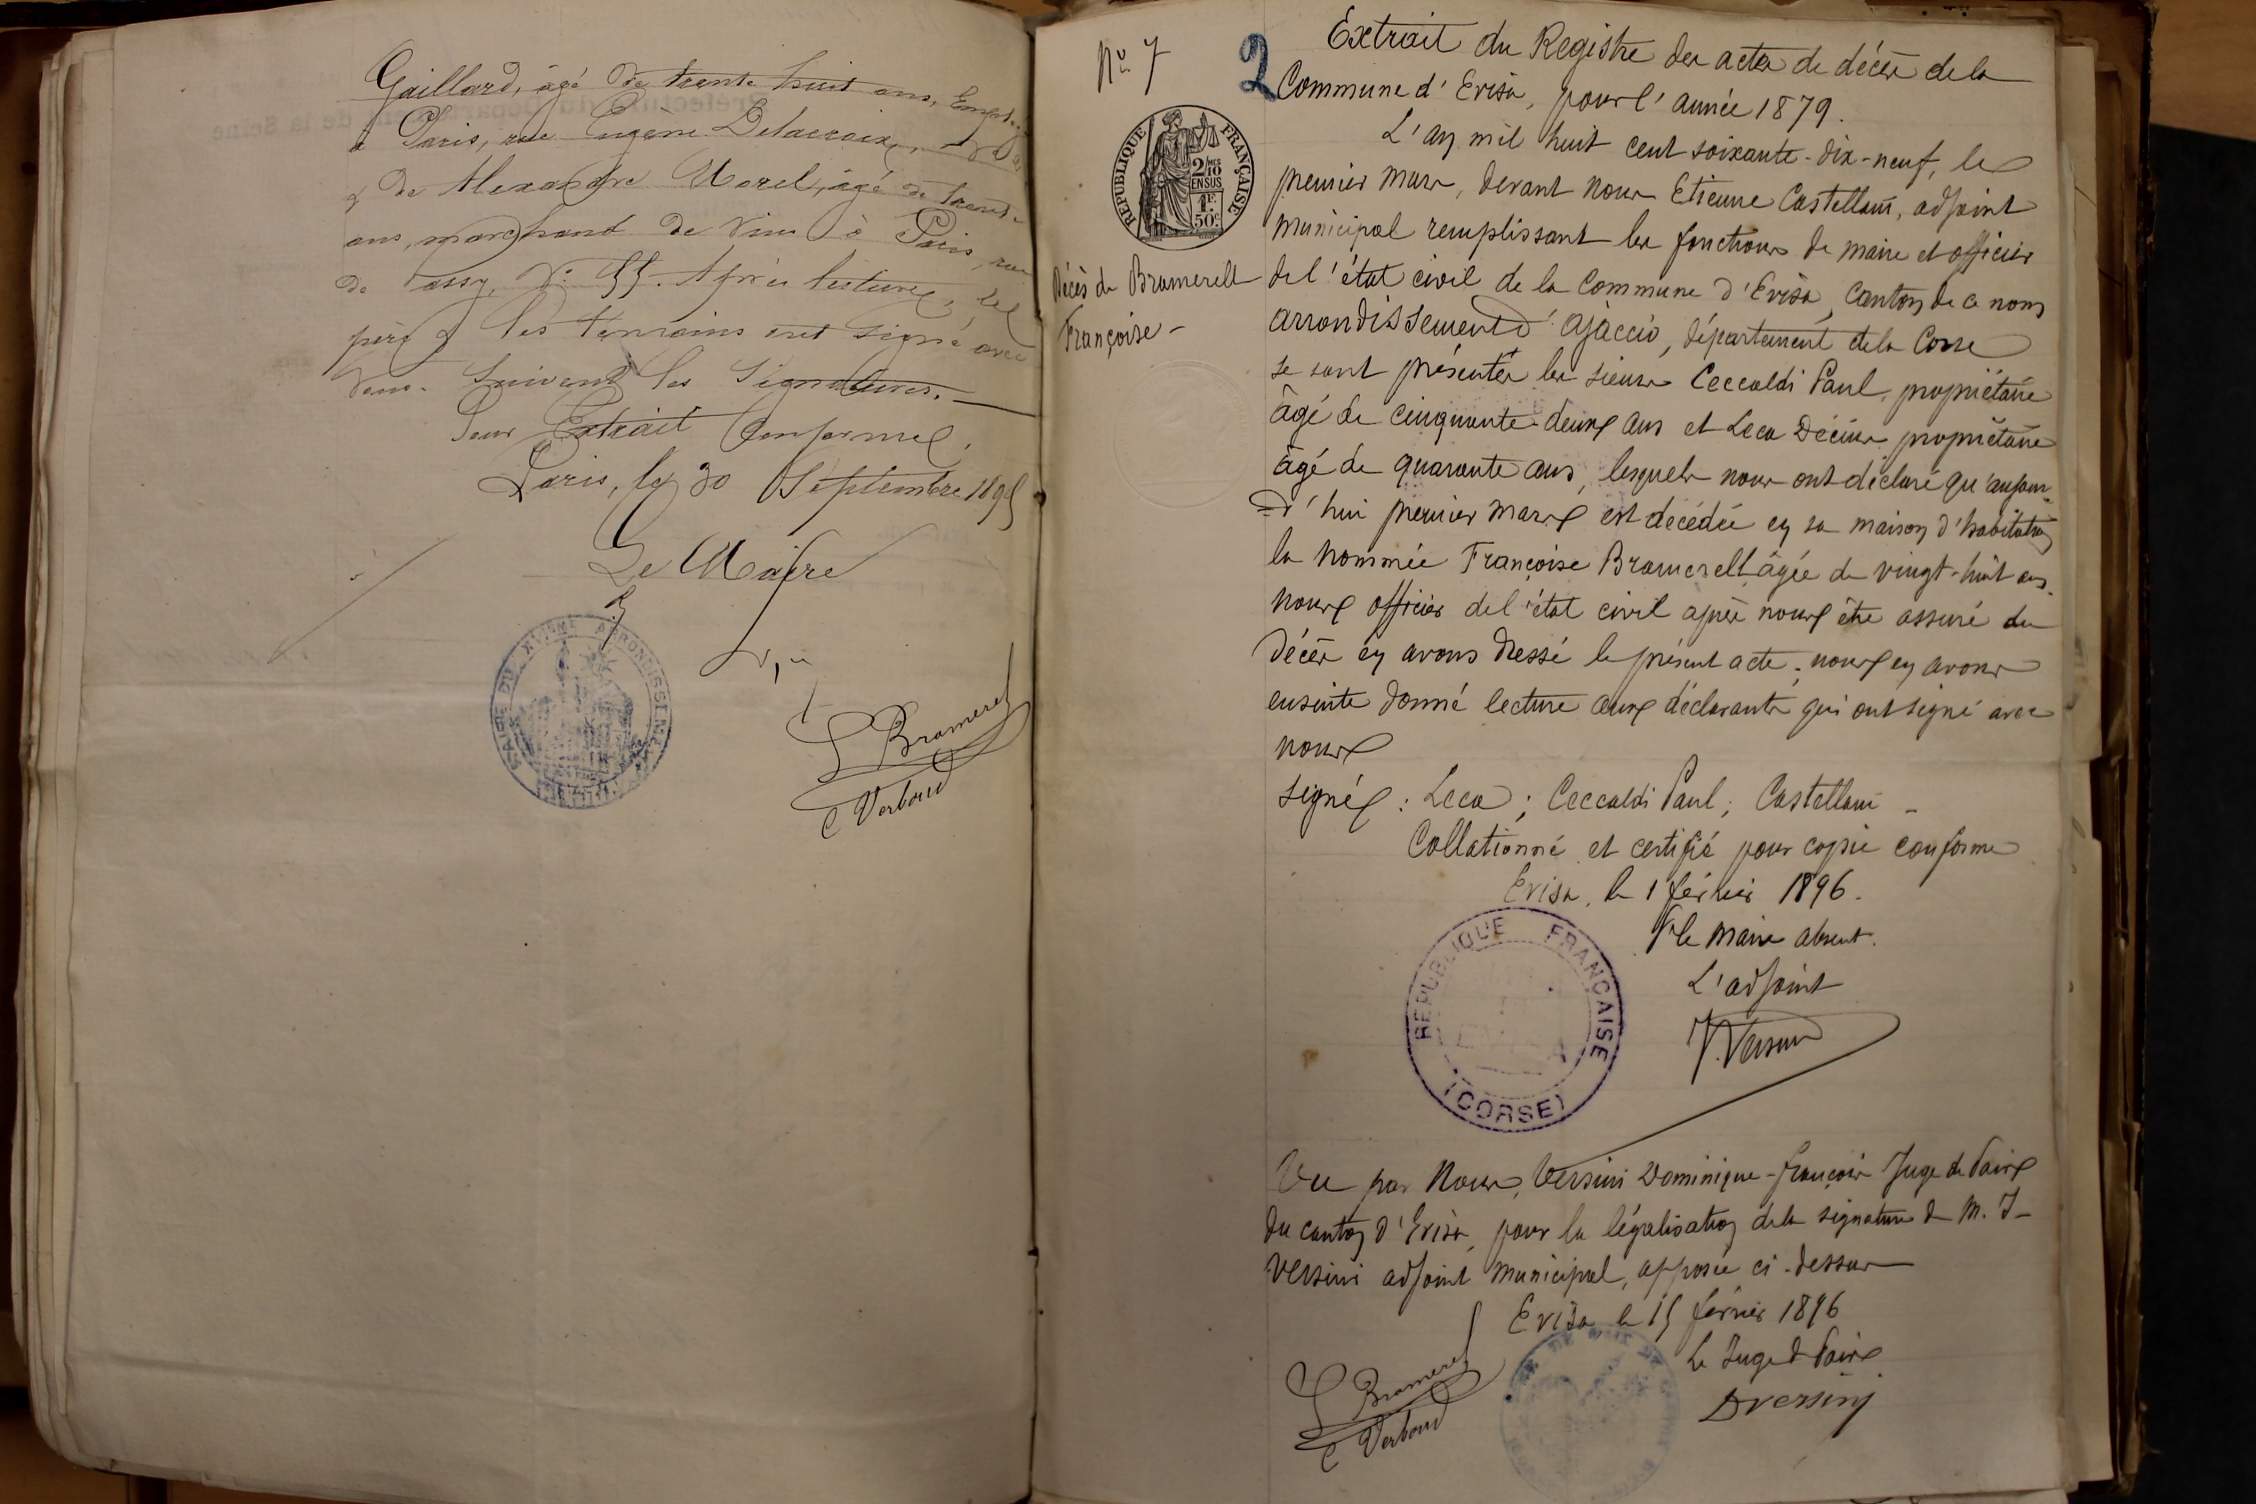 Gaillard, âgé de trente huit ans, Employé
à Paris, rue Eugène Delacroix,
& de Alexandre Morel, âgé de trente
ans, marchand de vins à Paris, rue
de Passy, N° 55. Après lecture, le
père & les témoins ont signé avec
Nous. Suivent les Signatures.
Pour Extrait Conforme,
Paris, le 30 Septembre 1895
Le Maire
MAIRIE DU XVIEME ARRONDISSEMENT
Bramerel
C Verbaud
N° 7
2
Extrait du Registre des actes de décès de la
Commune d'Evisa, pour l'année 1879.
REPUBLIQUE FRANÇAISE
2/10 EN SUS
1F 50c
L'an mil huit cent soixante-dix-neuf, le
premier mars, devant nous Etienne Castellani, adjoint
municipal remplissant les fonctions de maire et officier
Décès de Bramerell
Françoise -
de l'état civil de la commune d'Evisa, canton de ce nom
arrondissement d'ajaccio, département de la Corse
se sont présentés les sieurs Ceccaldi Paul, propriétaire
âgé de cinquante-deux ans et Leca Décius propriétaire
âgé de quarante ans, lesquels nous ont déclaré qu'aujour-
=d'hui premier mars est décédée en sa maison d'habitation
la nommée Françoise Bramerell âgée de vingt-huit ans.
nous officier de l'état civil après nous être assuré du
décès en avons dressé le présent acte; nous en avons
ensuite donné lecture aux déclarants qui ont signé avec
nous
signés: Leca; Ceccaldi Paul; Castellani -
Collationné et certifié pour copie conforme
Evisa, le 1 février 1896.
Pr le maire absent.
L'adjoint
J. Versini
REPUBLIQUE FRANÇAISE
(CORSE)
Vu par Nous, Versini Dominique-François Juge de Paix
du canton d'Evisa, pour la légalisation de la signature de M. J-
Versini adjoint municipal, apposée ci-dessus
Evisa le 15 février 1896
Le Juge de Paix
DVersini
Bramerel
C Verbaud